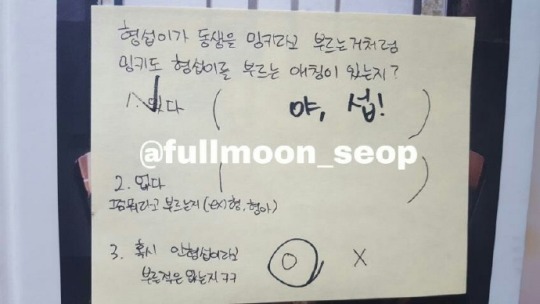 형섭이가 동생을 밍키라고 부르는거처럼
밍키도 형섭이를 부르는 애칭이 있는지?
1. 있다 ( 야, 섭! )
@fullmoon_seop
2. 없다 ( )
부르는지 (ex) 형, 형아)
3. 혹시 안형섭이라고
부른적은 있는지 ㅋㅋ O X